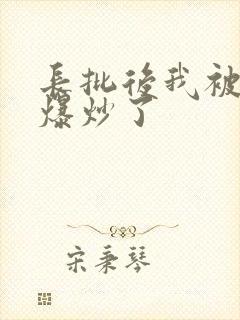 長批後我被
爆炒了
宋秉琴